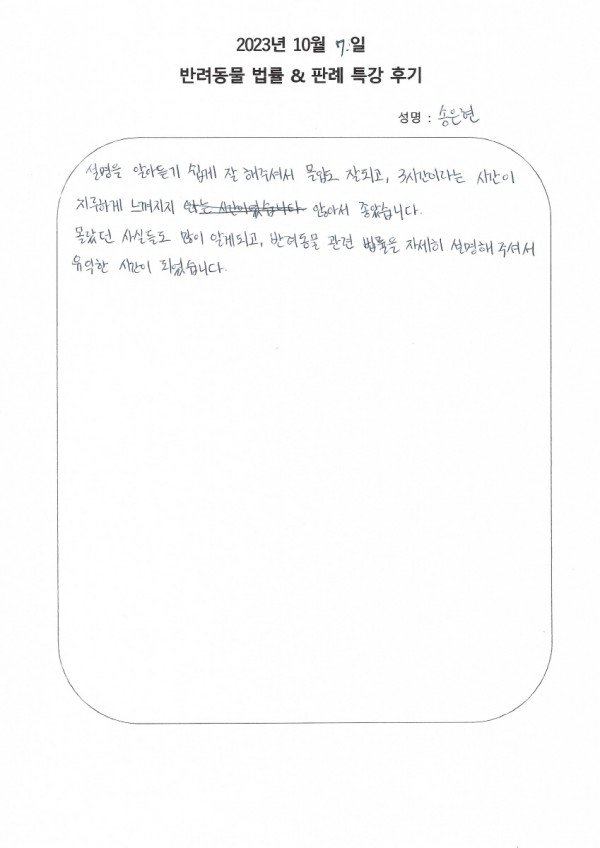 2023년 10월 7.일
반려동물 법률 & 판례 특강 후기
성명 : 송은현
설명을 알아듣기 쉽게 잘 해주셔서 몰입도 잘되고, 3시간이라는 시간이
지루하게 느껴지지 않는 시간이었습니다. 않아서 좋았습니다.
몰랐던 사실들도 많이 알게되고, 반려동물 관련 법률을 자세히 설명해 주셔서
유익한 시간이 되었습니다.